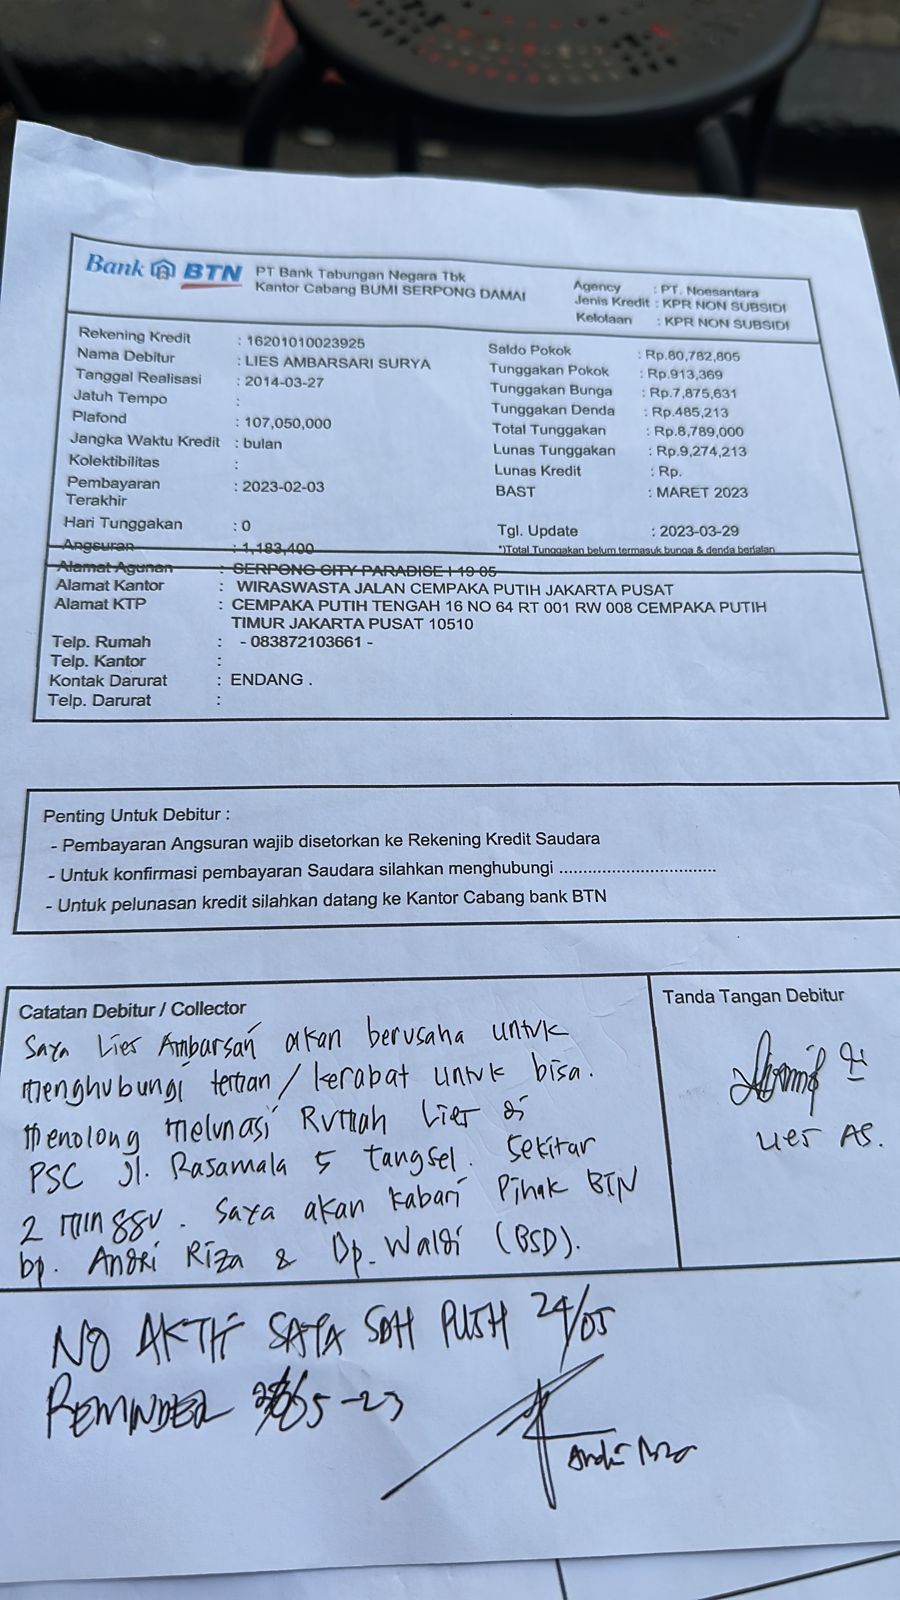 Bank BTN PT Bank Tabungan Negara Tbk
Kantor Cabang BUMI SERPONG DAMAI
Agency : PT. Noesantara
Jenis Kredit : KPR NON SUBSIDI
Kelolaan : KPR NON SUBSIDI
Rekening Kredit : 16201010023925
Nama Debitur : LIES AMBARSARI SURYA
Tanggal Realisasi : 2014-03-27
Jatuh Tempo :
Plafond : 107,050,000
Jangka Waktu Kredit : bulan
Kolektibilitas :
Pembayaran Terakhir : 2023-02-03
Hari Tunggakan : 0
Angsuran : 1,183,400
Saldo Pokok : Rp.80,782,805
Tunggakan Pokok : Rp.913,369
Tunggakan Bunga : Rp.7,875,631
Tunggakan Denda : Rp.485,213
Total Tunggakan : Rp.8,789,000
Lunas Tunggakan : Rp.9,274,213
Lunas Kredit : Rp.
BAST : MARET 2023
Tgl. Update : 2023-03-29
*)Total Tunggakan belum termasuk bunga & denda berjalan
Alamat Agunan : SERPONG CITY PARADISE I 19 05
Alamat Kantor : WIRASWASTA JALAN CEMPAKA PUTIH JAKARTA PUSAT
Alamat KTP : CEMPAKA PUTIH TENGAH 16 NO 64 RT 001 RW 008 CEMPAKA PUTIH
TIMUR JAKARTA PUSAT 10510
Telp. Rumah : - 083872103661 -
Telp. Kantor :
Kontak Darurat : ENDANG .
Telp. Darurat :
Penting Untuk Debitur :
- Pembayaran Angsuran wajib disetorkan ke Rekening Kredit Saudara
- Untuk konfirmasi pembayaran Saudara silahkan menghubungi ................................
- Untuk pelunasan kredit silahkan datang ke Kantor Cabang bank BTN
Catatan Debitur / Collector
Saya Lies Ambarsari akan berusaha untuk
menghubungi teman / kerabat untuk bisa.
menolong melunasi Rumah Lies di
PSC Jl. Rasamala 5 tangsel. Sekitar
2 minggu. Saya akan kabari Pihak BTN
bp. Andri Riza & Bp. Waldi (BSD).
Tanda Tangan Debitur
Lies AS.
NO AKTIF SAYA SDH PUSH 24/05
REMINDER 05-23
Andri Riza